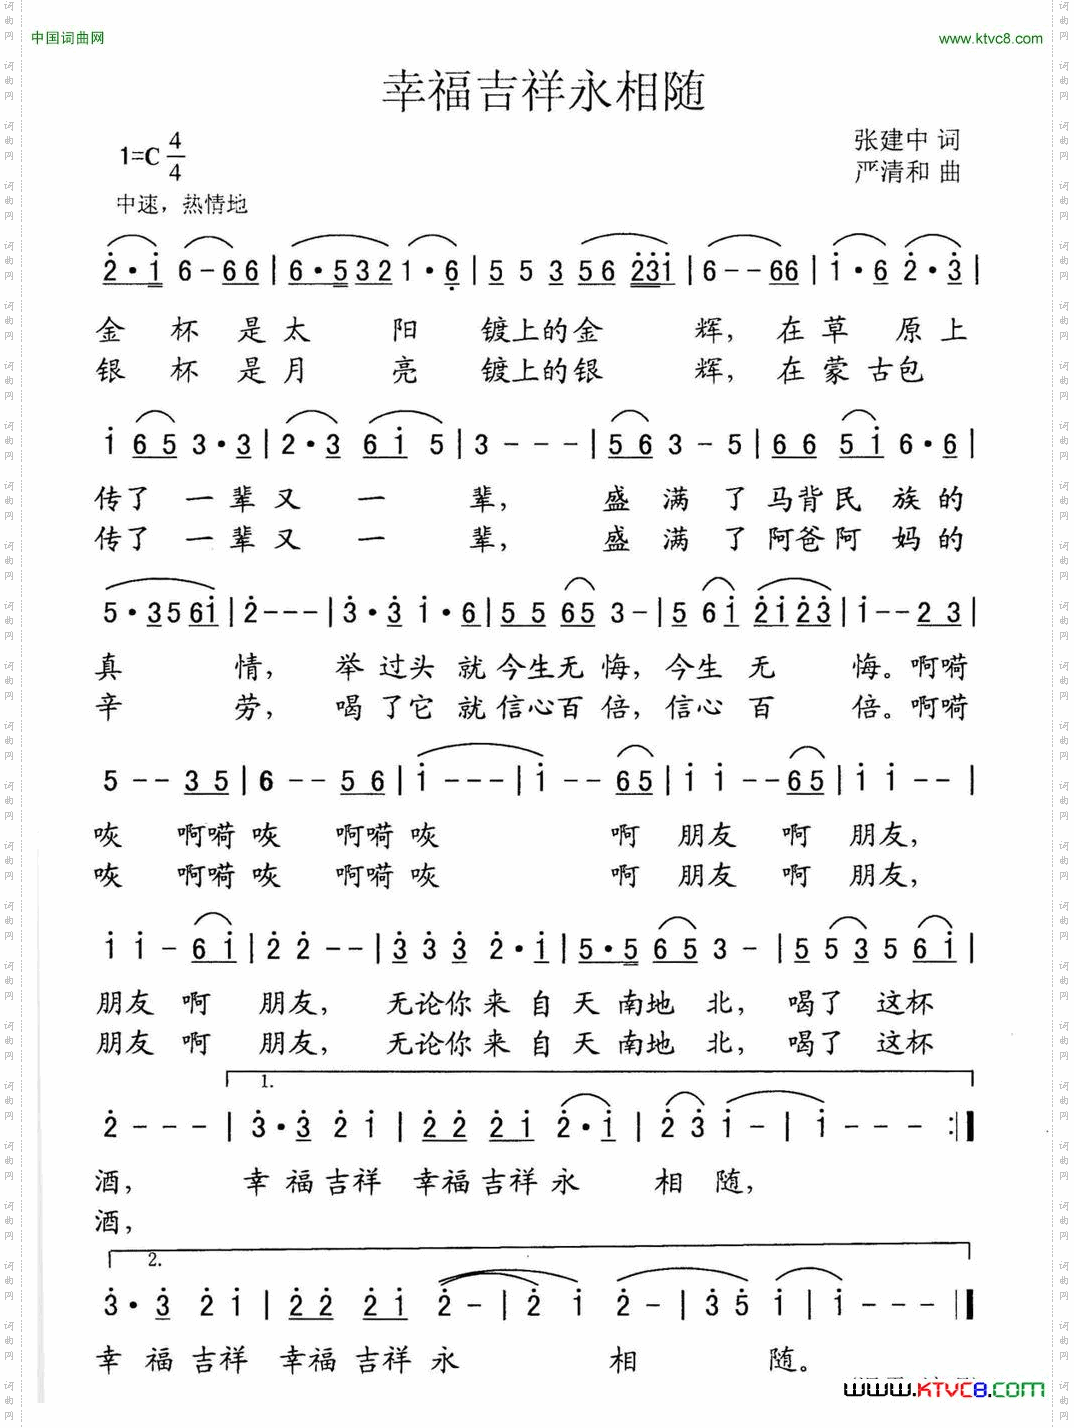 中国词曲网 www.ktvc8.com
幸福吉祥永相随
1=C 4/4
张建中 词
严清和 曲
中速，热情地
2̇·1̇ 6-66 | 6·5321·6̣ | 5 5 3 56 2̇3̇1̇ | 6--66 | 1̇·6 2̇·3̇ |
金 杯 是太 阳 镀上的金 辉，在草 原上
银 杯 是月 亮 镀上的银 辉，在蒙 古包
1̇ 65 3·3 | 2·3 61̇ 5 | 3--- | 56 3-5 | 66 51̇ 6·6 |
传了 一辈又 一 辈， 盛 满 了 马背民 族的
传了 一辈又 一 辈， 盛 满 了 阿爸阿 妈的
5·35 61̇ | 2̇--- | 3̇·3̇ 1̇·6 | 55 65 3- | 5 61̇ 2̇1̇2̇3̇ | 1̇--2 3 |
真 情， 举 过头 就今生无 悔，今生 无 悔。啊嗬
辛 劳， 喝 了它 就信心百 倍，信心 百 倍。啊嗬
5--35 | 6--56 | 1̇--- | 1̇--65 | 1̇ 1̇--65 | 1̇ 1̇-- |
咴 啊嗬咴 啊嗬咴 啊 朋友 啊 朋友，
咴 啊嗬咴 啊嗬咴 啊 朋友 啊 朋友，
1̇ 1̇-61̇ | 2̇ 2̇-- | 3̇ 3̇ 3̇ 2̇·1̇ | 5·5 65 3- | 5 5 3 5 61̇ |
朋友 啊 朋友， 无论你来 自 天 南地 北， 喝了 这杯
朋友 啊 朋友， 无论你来 自 天 南地 北， 喝了 这杯
1.
2̇--- | 3̇·3̇ 2̇ 1̇ | 2̇2̇ 2̇1̇ 2̇·1̇ | 2̇ 3̇ 1̇- | 1̇--- :|
酒， 幸 福吉祥 幸福吉祥 永 相 随，
酒，
2.
3̇·3̇ 2̇ 1̇ | 2̇2̇ 2̇1̇ 2̇- | 2̇ 1̇ 2̇- | 3̇ 5̇ 1̇ | 1̇--- |
幸 福 吉祥 幸福 吉祥 永 相 随。
www.KTVC8.com